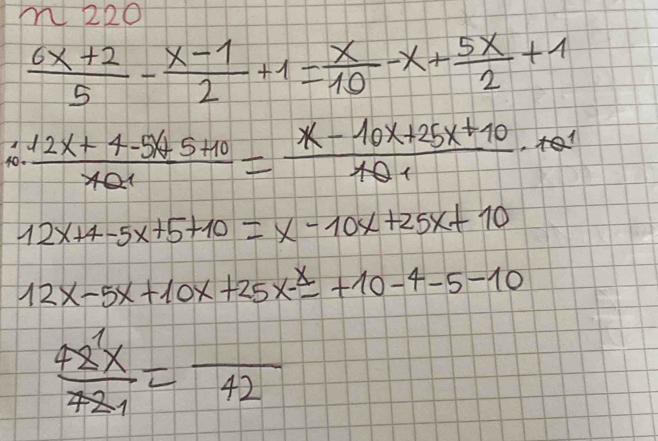 n 220
(6x+2)/5 - (x-1)/2 + 1 = x/10 - x + 5x/2 + 1
10· (12x + 4 - 5x + 5 + 10)/10 1 = (x - 10x + 25x + 10)/10 1 · 10 1
12x+4-5x+5+10 = x-10x+25x+10
12x-5x+10x+25x-x = +10-4-5-10
42 1 x/42 1 = /42